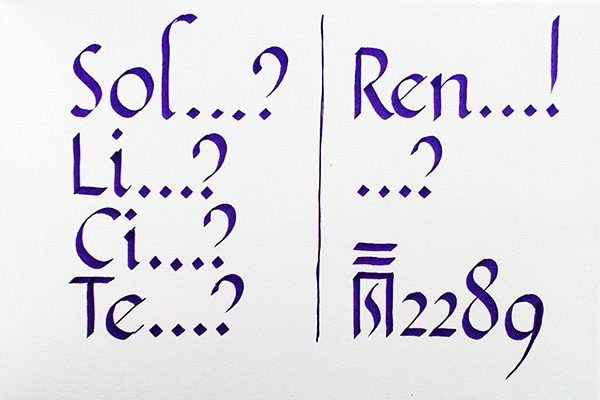 Sol...?
Li...?
Ci...?
Te...?
Ren...!
...?
2289